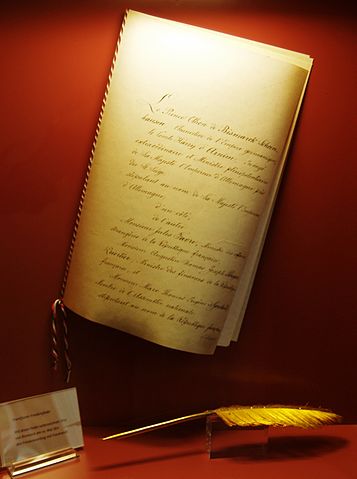 Le Prince Othon de Bismarck-Schön-
hausen, Chancelier de l'Empire germanique,
le Comte Harry d'Arnim, Envoyé
extraordinaire et Ministre plénipotentiaire
de Sa Majesté l'Empereur d'Allemagne près
du St Siège,
stipulant au nom de Sa Majesté l'Empereur
d'Allemagne,
d'un côté,
de l'autre
Monsieur Jules Favre, Ministre des affaires
étrangères de la République française,
Monsieur Augustin Thomas Joseph Pouyer-
Quertier, Ministre des finances de la République
française, et
Monsieur Marc Thomas Eugène de Goulard,
Membre de l'Assemblée nationale
stipulant au nom de la République française